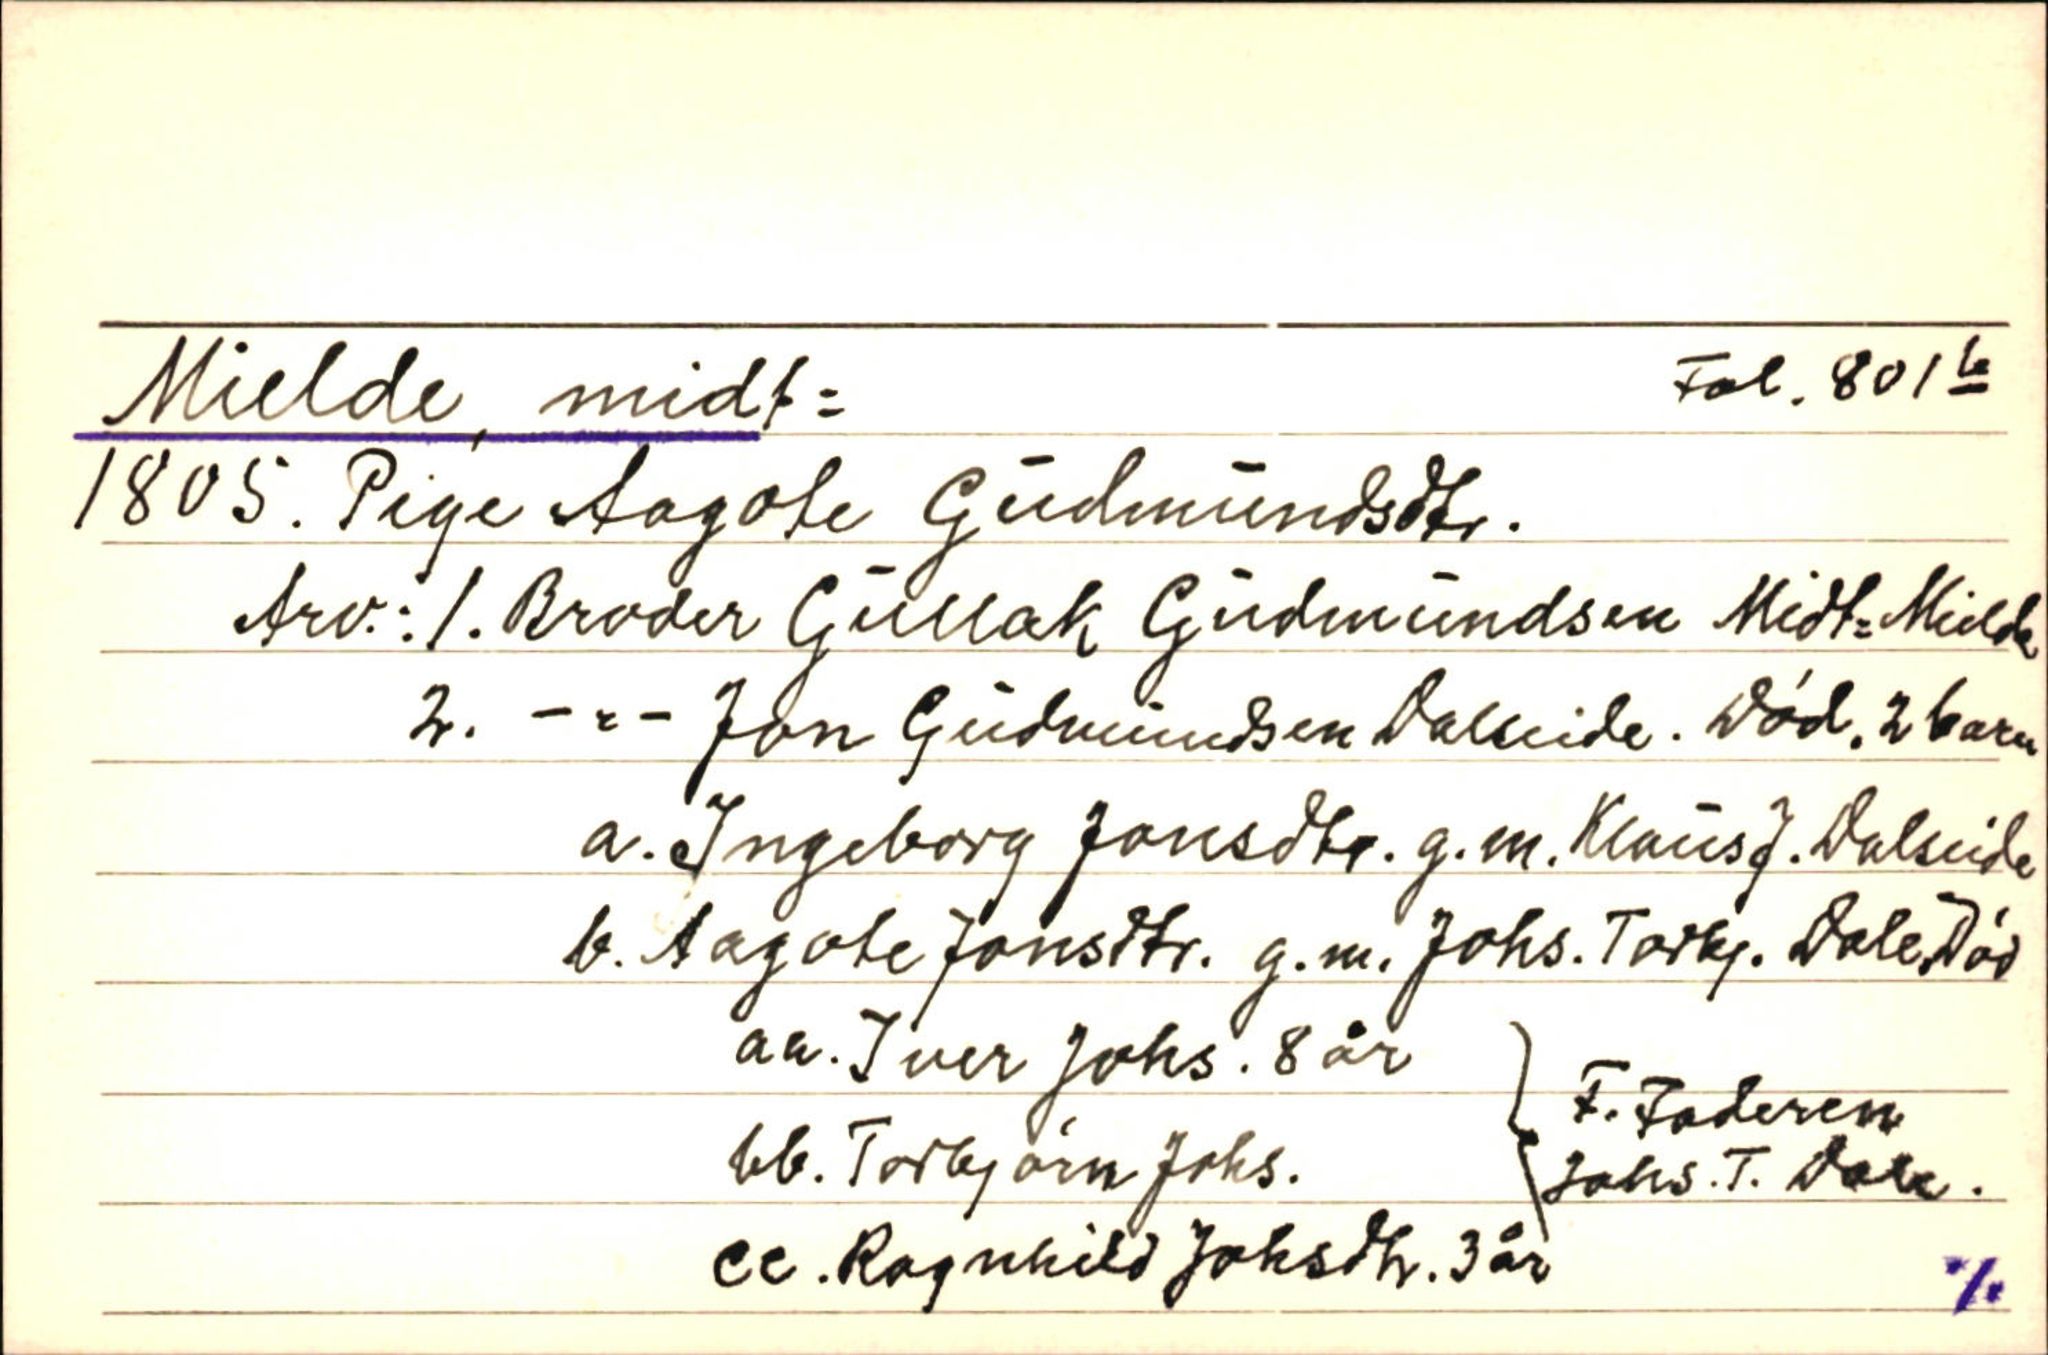 Mielde, midt= Fol. 801 b
1805. Pige Aagote Gudmundsdtr.
Arv.: 1. Broder Gullak Gudmundsen Midt=Mielde
2. -"- Jon Gudmundsen Dalseide. Död. 2 barn
a. Ingeborg Jonsdtr. g.m. Klaus J. Dalseide
b. Aagote Jonsdtr. g.m. Johs. Torbj. Dale. Död
aa. Iver Johs. 8 år
bb. Torbjörn Johs.
cc. Ragnhild Johsdtr. 3 år
F. Faderen
Johs. T. Dale.